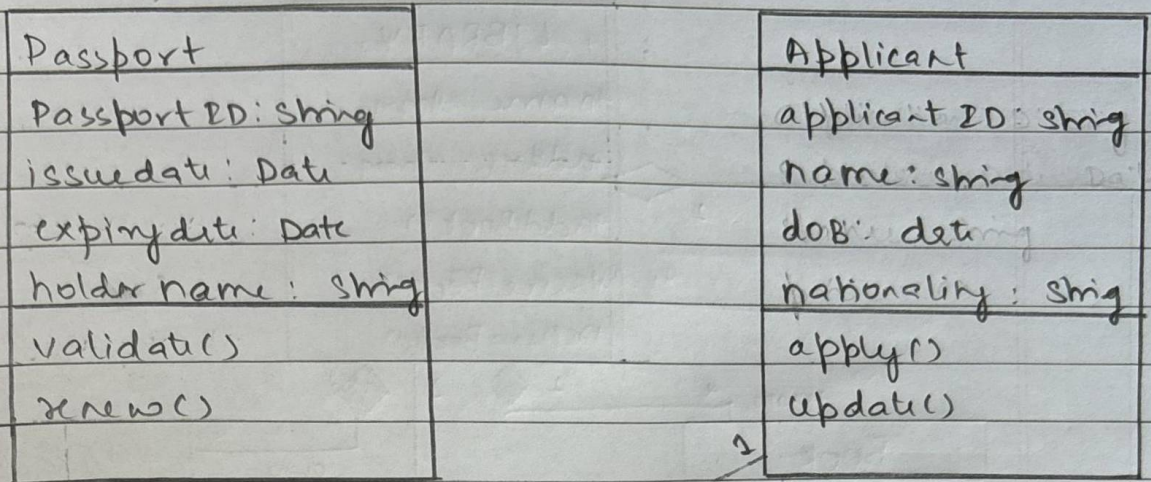 Passport
Passport ID: String
issuedate: Date
expirydate: Date
holder name: String
validate()
renew()
Applicant
applicant ID: String
name: String
doB: date
nationality: String
apply()
update()
1